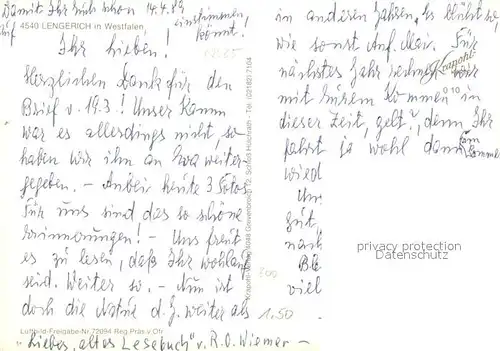 Damit Ihr Euch schon 14.4.89
einstimmen,
könnt.
4540 LENGERICH in Westfalen
Ihr Lieben!
Herzlichen Dank für den
Brief v. 19.3! Unser Kamm
war es allerdings nicht, so
haben wir ihn an Eva weiter-
gegeben. – Anbei heute 3 Fotos
Für uns sind das so schöne
Erinnerungen! – Uns freut
es zu lesen, daß Ihr wohlauf
seid. Weiter so. – Nun ist
doch die Natur d. J. weiter als
Luftbild-Freigabe-Nr. 72094 Reg. Präs. v. Ofr
"Liebes, altes Lesebuch" v. R. O. Wiemer –
Krapohl-Verlag 4048 Grevenbroich 12, Schloß Hülchrath - Tel. 02182/7104
in anderen Jahren. Es blüht so,
wie sonst Anf. Mai. Für
nächstes Jahr rechnen wir
mit Eurem Kommen in
dieser Zeit, gelt?, denn Ihr
fahrt ja wohl dann im
Sommer
wied
Un
gut,
nach
viel
Krapohl
010
privacy protection
Datenschutz
1.50